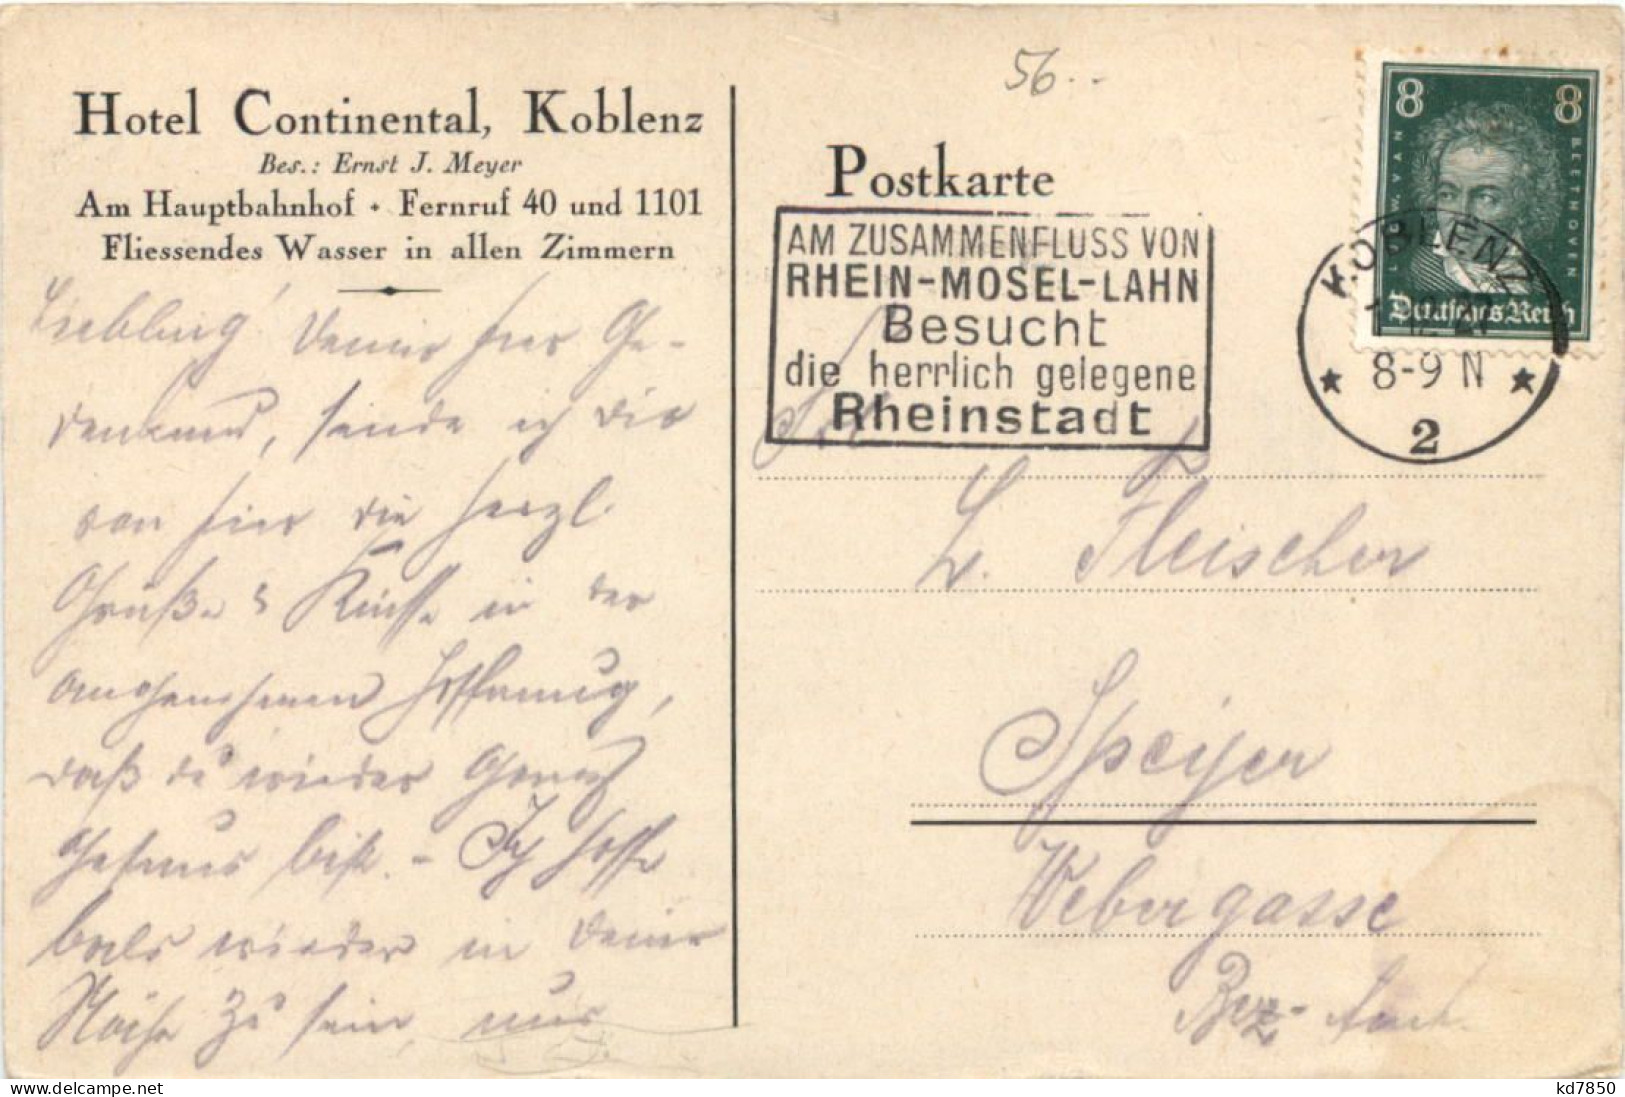 Hotel Continental, Koblenz
Bes.: Ernst J. Meyer
Am Hauptbahnhof • Fernruf 40 und 1101
Fliessendes Wasser in allen Zimmern
Liebling! Deiner hier Ge-
denkend, sende ich dir
von hier die herzl.
Grüße & Küsse in der
angenehmen Hoffnung,
daß du wieder
bist. - Ich hoffe
bald wieder in Deiner
Nähe zu sein,
56..
Postkarte
AM ZUSAMMENFLUSS VON
RHEIN-MOSEL-LAHN
Besucht
die herrlich gelegene
Rheinstadt
8 8
L. W. VAN BEETHOVEN
Deutsches Reich
KOBLENZ
8-9 N
* 2 *
L. Fleischer
Speyer
Webergasse
Bez.-Amt.
delcampe.net
kd7850